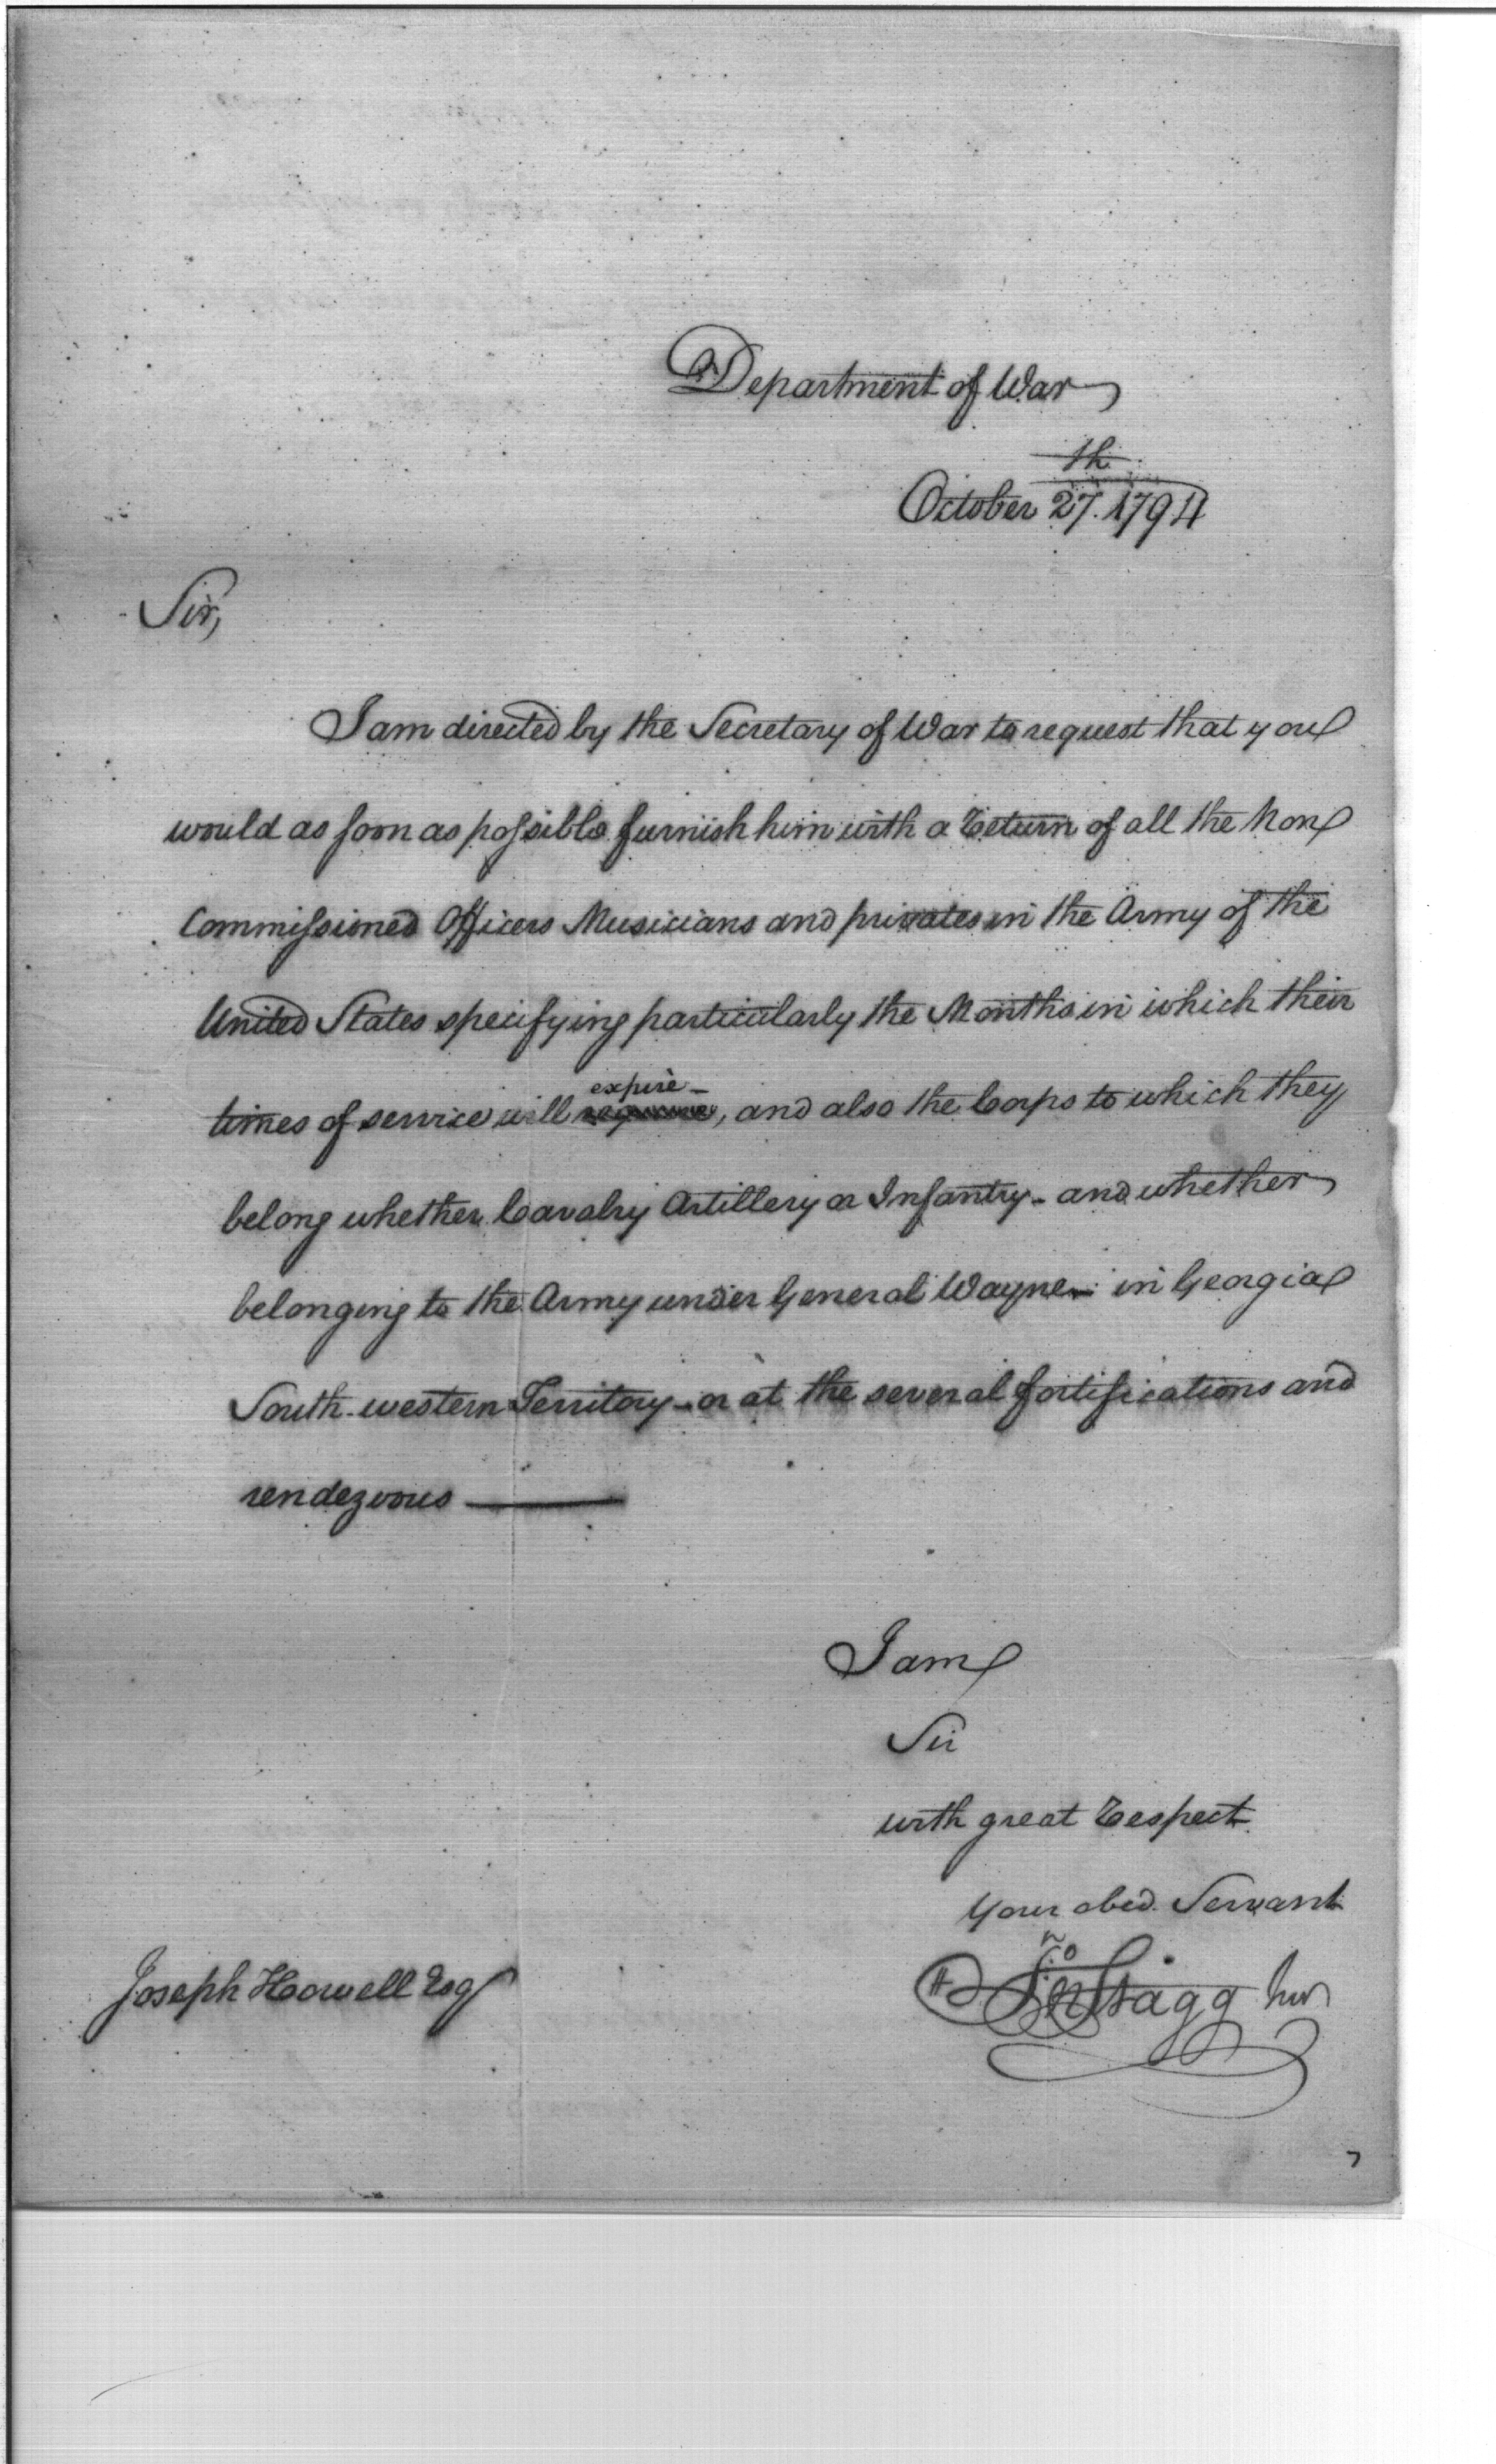 Department of War
th
October 27. 1794
Sir,
I am directed by the Secretary of War to request that you
would as soon as possible furnish him with a Return of all the Non
Commissioned Officers Musicians and privates in the Army of the
United States specifying particularly the Months in which their
expire
times of service will , and also the Corps to which they
belong whether Cavalry Artillery or Infantry - and whether
belonging to the Army under General Wayne - in Georgia
South-western Territory - or at the several fortifications and
rendezvous
I am
Sir
with great Respect
Your obed. Servant
Jno Stagg Junr
Joseph Howell Esq